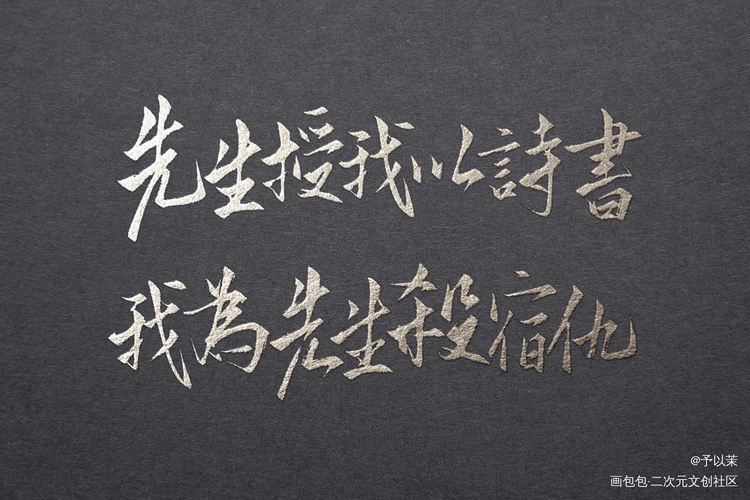 先生授我以詩書
我為先生殺宿仇
@予以茉
画包包·二次元文创社区